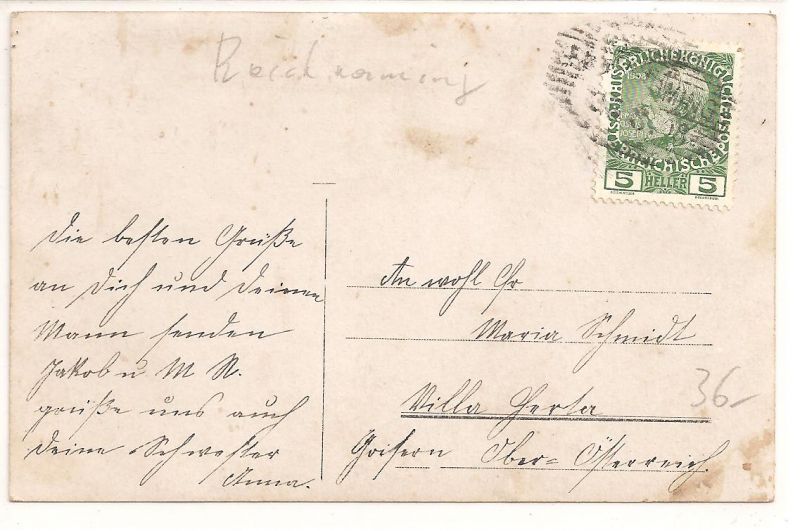 Reichraming
KAISERLICHE KÖNIGLICHE
1908
ÖSTERREICHISCHE POST
5 HELLER 5
die besten Grüße
an dich und deinen
Mann senden
Jakob u M R.
grüße uns auch
deine Schwester
Anna.
An wohl
Maria Schmidt
Villa Herta
Goisern Ober=Österreich.
36-